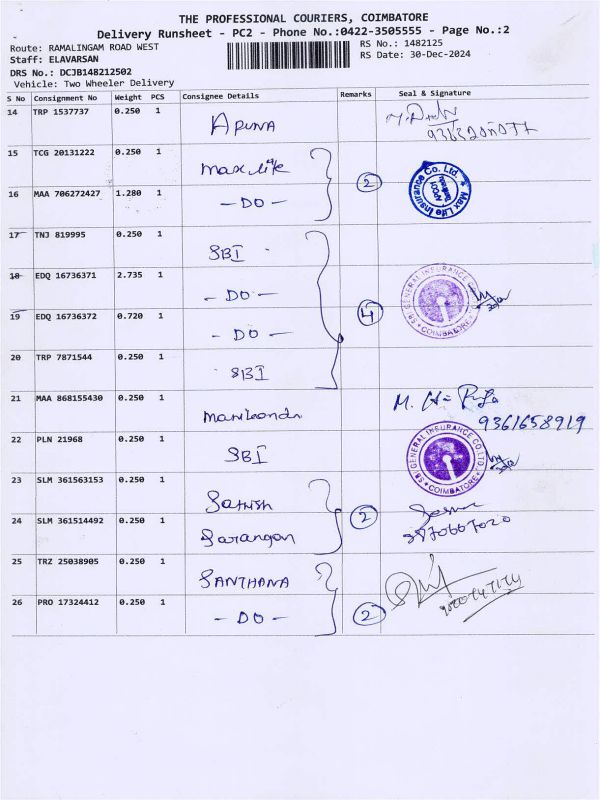 THE PROFESSIONAL COURIERS, COIMBATORE
Delivery Runsheet - PC2 - Phone No.:0422-3505555 - Page No.:2
Route: RAMALINGAM ROAD WEST
RS No.: 1482125
Staff: ELAVARSAN
RS Date: 30-Dec-2024
DRS No.: DCJB148212502
Vehicle: Two Wheeler Delivery
S No Consignment No Weight PCS Consignee Details Remarks Seal & Signature
14 TRP 1537737 0.250 1 ARUNA
15 TCG 20131222 0.250 1 Max life
16 MAA 706272427 1.280 1 - DO - 2 Max Life Insurance Co. Ltd.
17 TNJ 819995 0.250 1 SBI
18 EDQ 16736371 2.735 1 - DO - 4 SBI GENERAL INSURANCE COIMBATORE
19 EDQ 16736372 0.720 1 - DO -
20 TRP 7871544 0.250 1 SBI
21 MAA 868155430 0.250 1 9361658919
22 PLN 21968 0.250 1 SBI SBI GENERAL INSURANCE CO.LTD. COIMBATORE
23 SLM 361563153 0.250 1 Sathish 2
24 SLM 361514492 0.250 1 Sarangan
25 TRZ 25038905 0.250 1 SANTHANA
26 PRO 17324412 0.250 1 - DO - 2